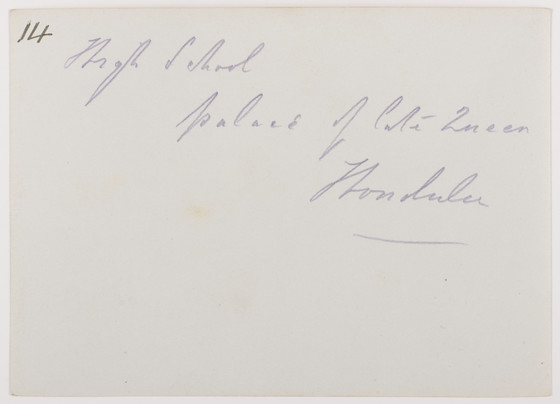 14
High School
palace of late Queen
Honolulu